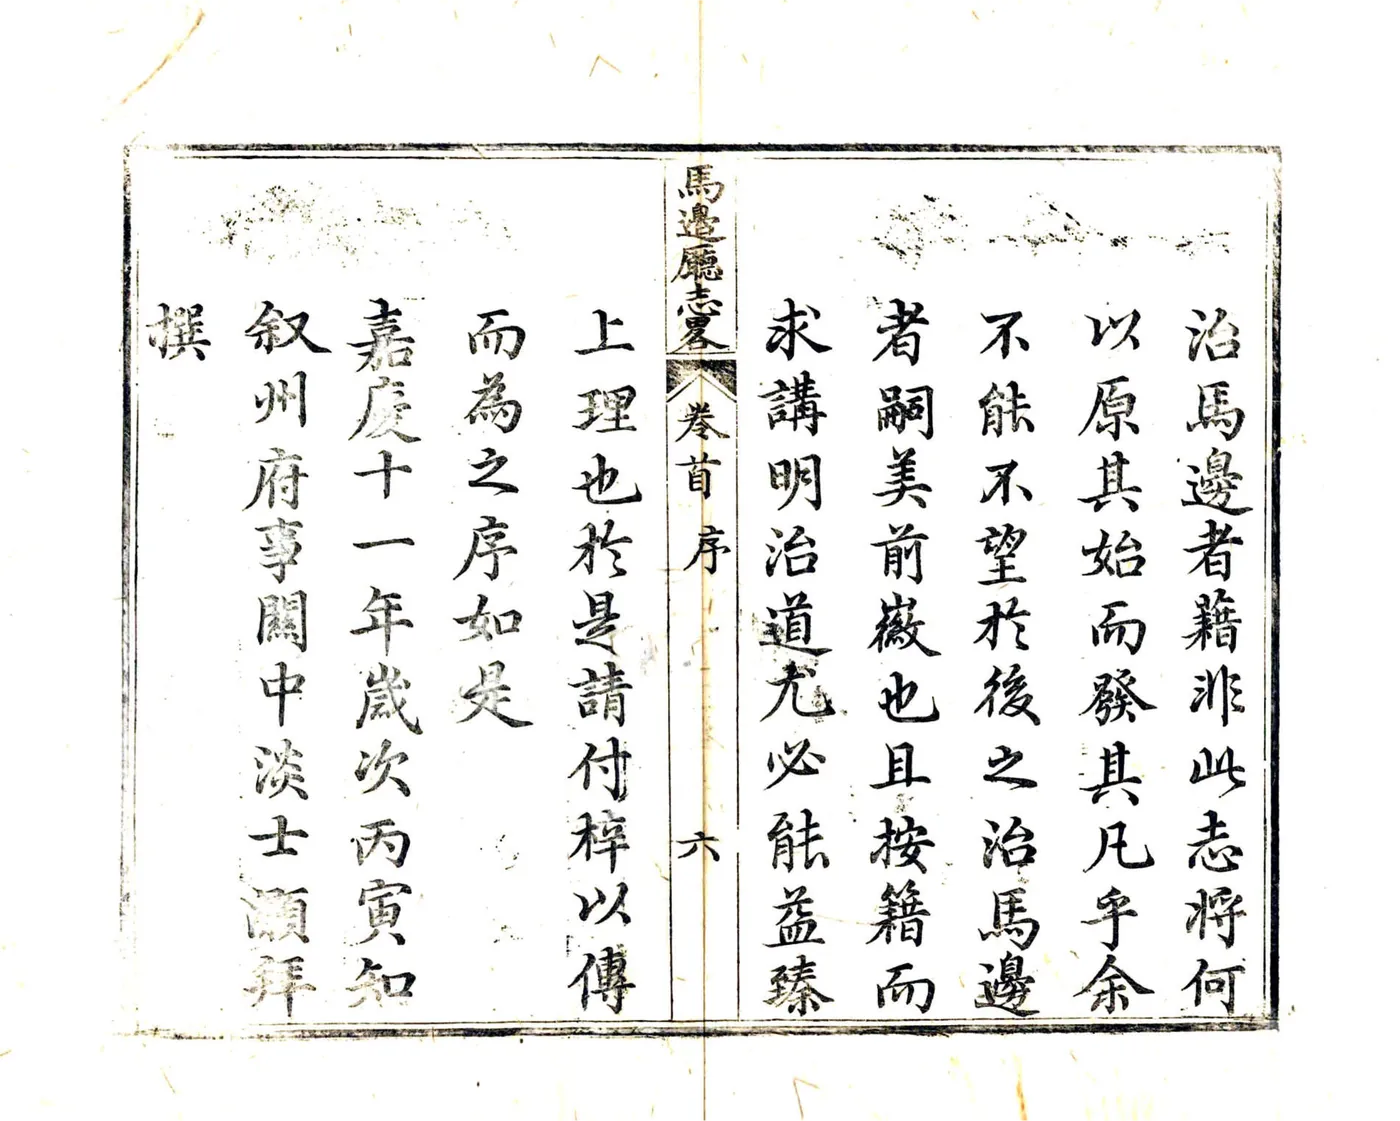 治馬邊者藉非此志將何
以原其始而發其凡乎余
不能不望於後之治馬邊
者嗣美前徽也且按籍而
求講明治道尤必能益臻
馬邊廳志畧
卷首
序
六
上理也於是請付梓以傳
而為之序如是
嘉慶十一年歲次丙寅知
叙州府事關中淡士灝拜
撰